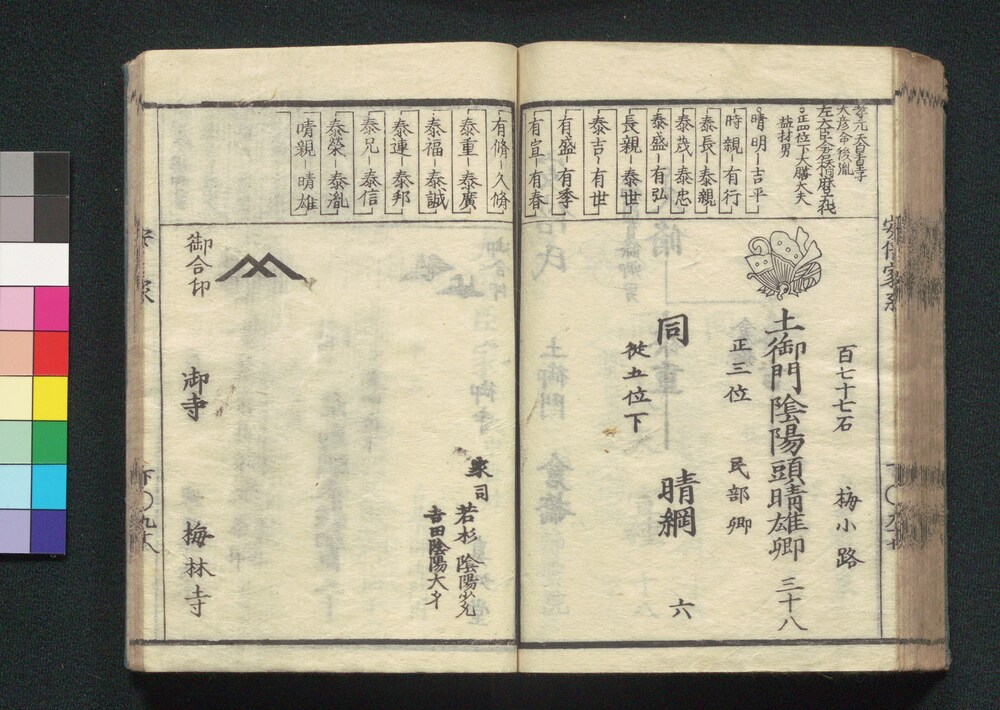 孝元天皇皇子
大彦命後胤
左大臣倉橋麿五代
正四位下大膳大夫
益材男
晴明―吉平
時親―有行
泰長―泰親
泰茂―泰忠
泰盛―有弘
長親―泰世
泰吉―有世
有盛―有季
有宣―有春
百七十七石 梅小路
土御門陰陽頭晴雄卿 三十八
正三位 民部卿
同 晴綱 六
従五位下
有脩―久脩
泰重―泰廣
泰福―泰誠
泰連―泰邦
泰兄―泰信
泰榮―泰胤
晴親―晴雄
家司
若杉陰陽少允
吉田陰陽大才
御合印
御寺 梅林寺